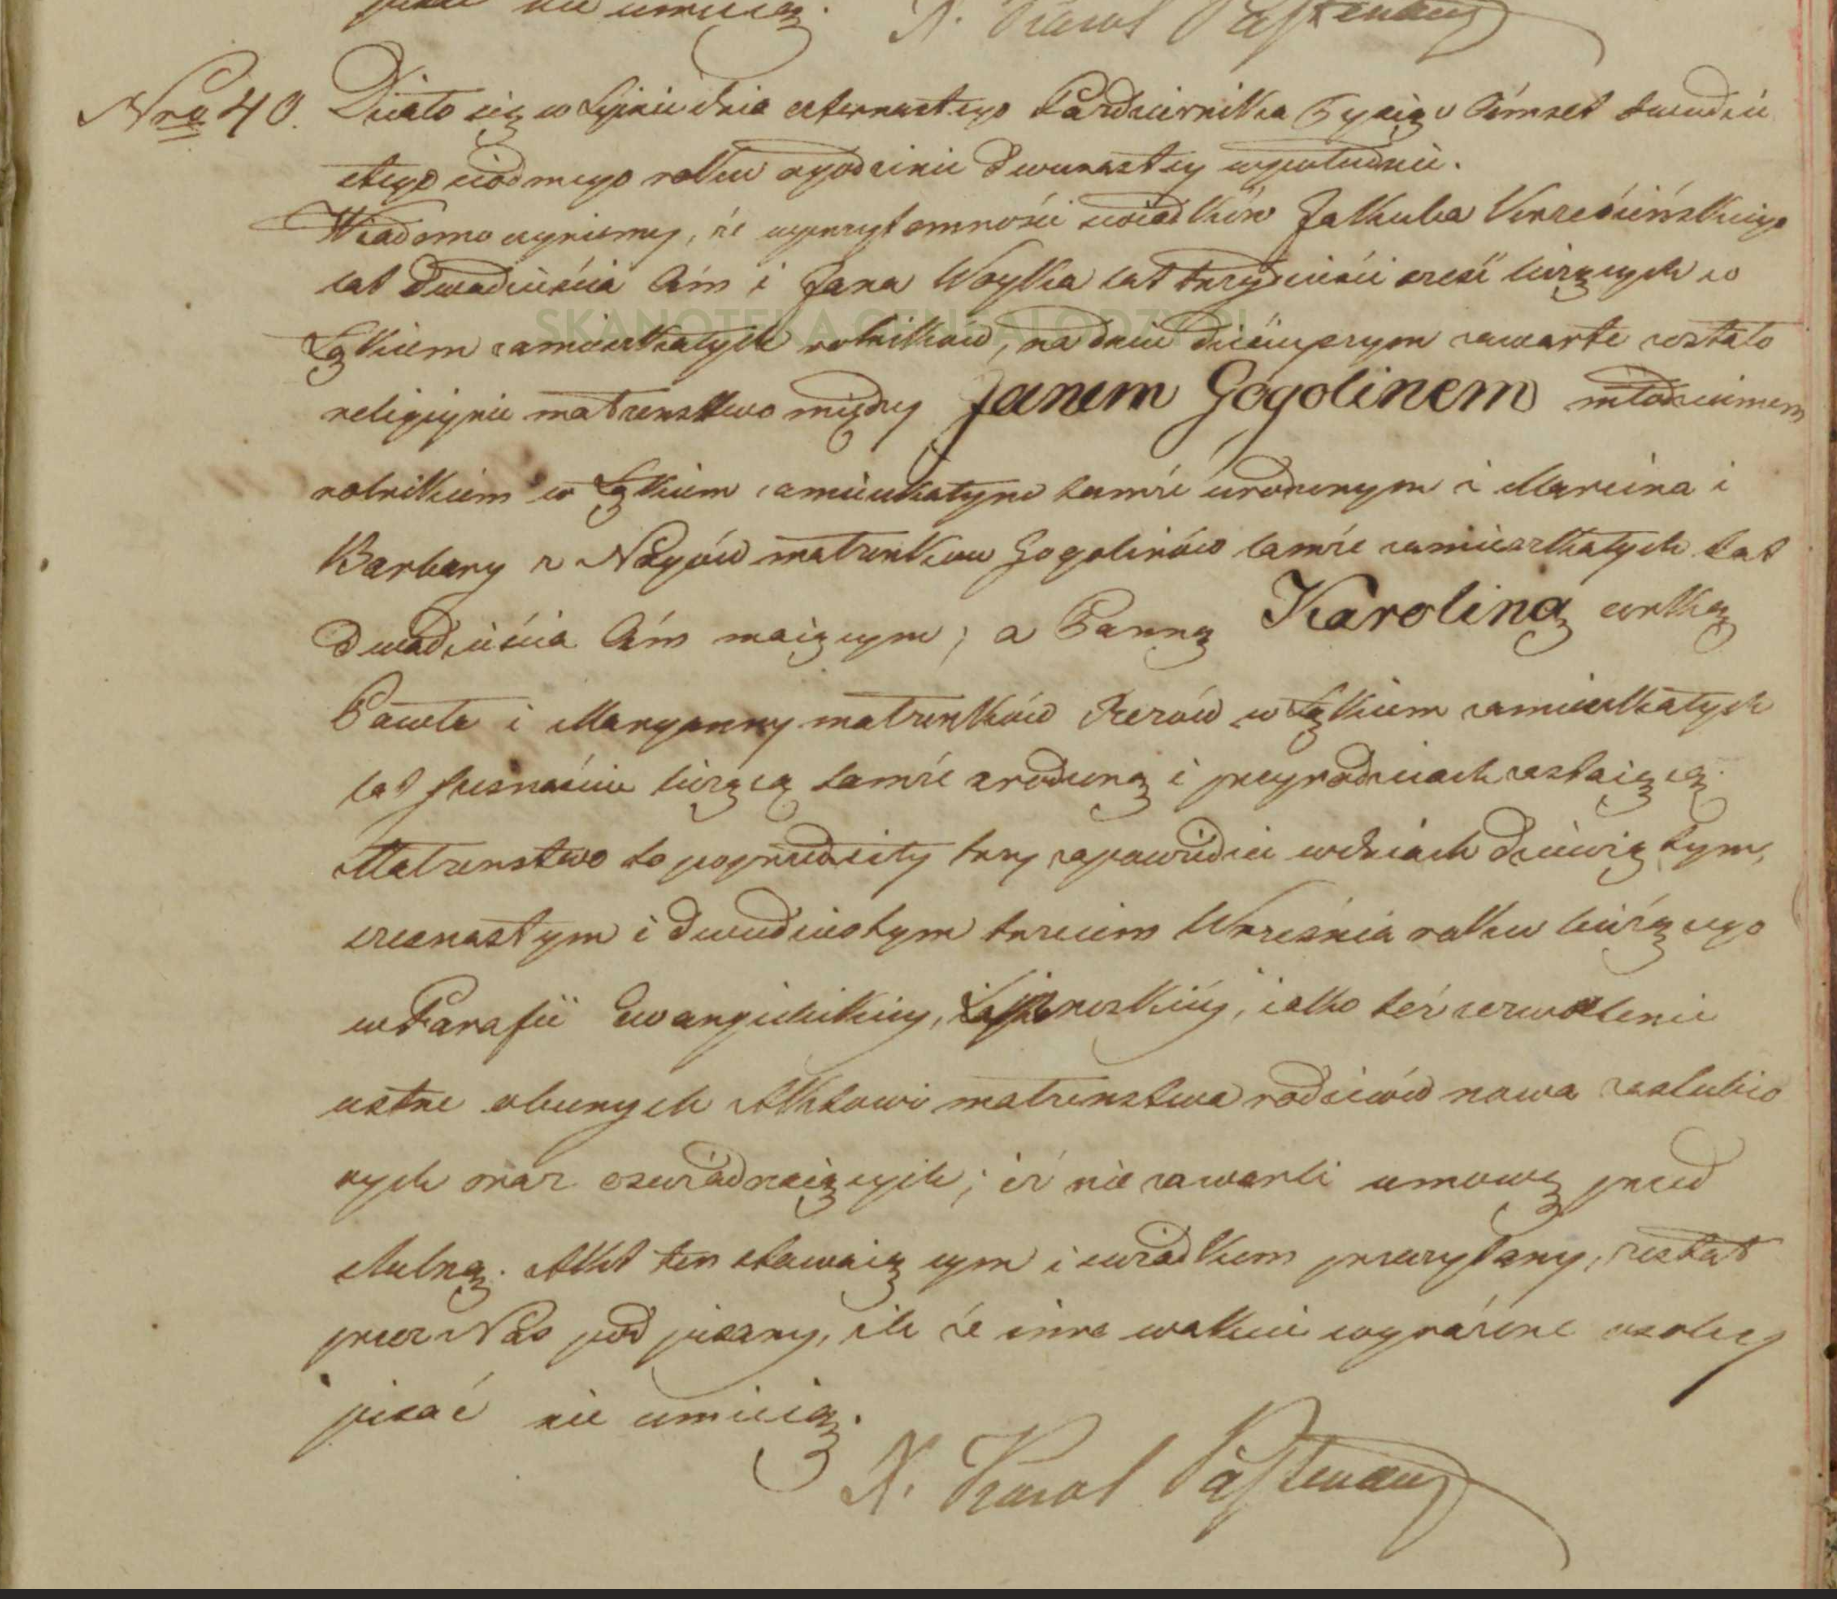 pisać nie umieią.
X. Karol Pastenacy
Nro 40. Działo się w Lipinie dnia czternastego Października Tysiąc Ośmset dwudzie
stego siódmego roku o godzinie Dwunastey w południe.
Wiadomo czyniemy, że w przytomności świadków Jakuba
lat Dwadzieścia Ośm i Jana Woyka lat trzydzieści sześć liczących w
Łąkiem zamieszkałych rolników, na dniu dzisieyszym zawarte zostało
SKANOTEKA.GENEALODZY.PL
religiynie małżenstwo między Janem Gogolinem młodzianem
rolnikiem w Łąkiem zamieszkałym tamże urodzonym z Marcina i
Barbary z małżonków Gogolinów tamże zamieszkałych lat
Dwadzieścia Ośm maiącym; a Panną Karoliną corką
Pawła i Maryanny małżonków w Łąkiem zamieszkałych
lat szesnaście liczącą tamże zrodzoną i przy rodzicach zostaiącą.
Małżenstwo to poprzedziły trzy zapowiedzi w dniach Dziewiątym,
szesnastym i Dwudziestym trzecim Września roku bieżącego
w Parafii Ewangielickiey, iako też zezwolenie
ustne obecnych Aktowi małżenstwa rodziców nowo zaślubio
nych oraz oswiadczaiących; iż nie zawarli umowy przed
slubney. Akt ten stawaiącym i swiadkom przeczytany, został
przez Nas podpisany, ile że inne w akcie wyrażone osoby
pisać nie umieią.
X. Karol Pastenacy